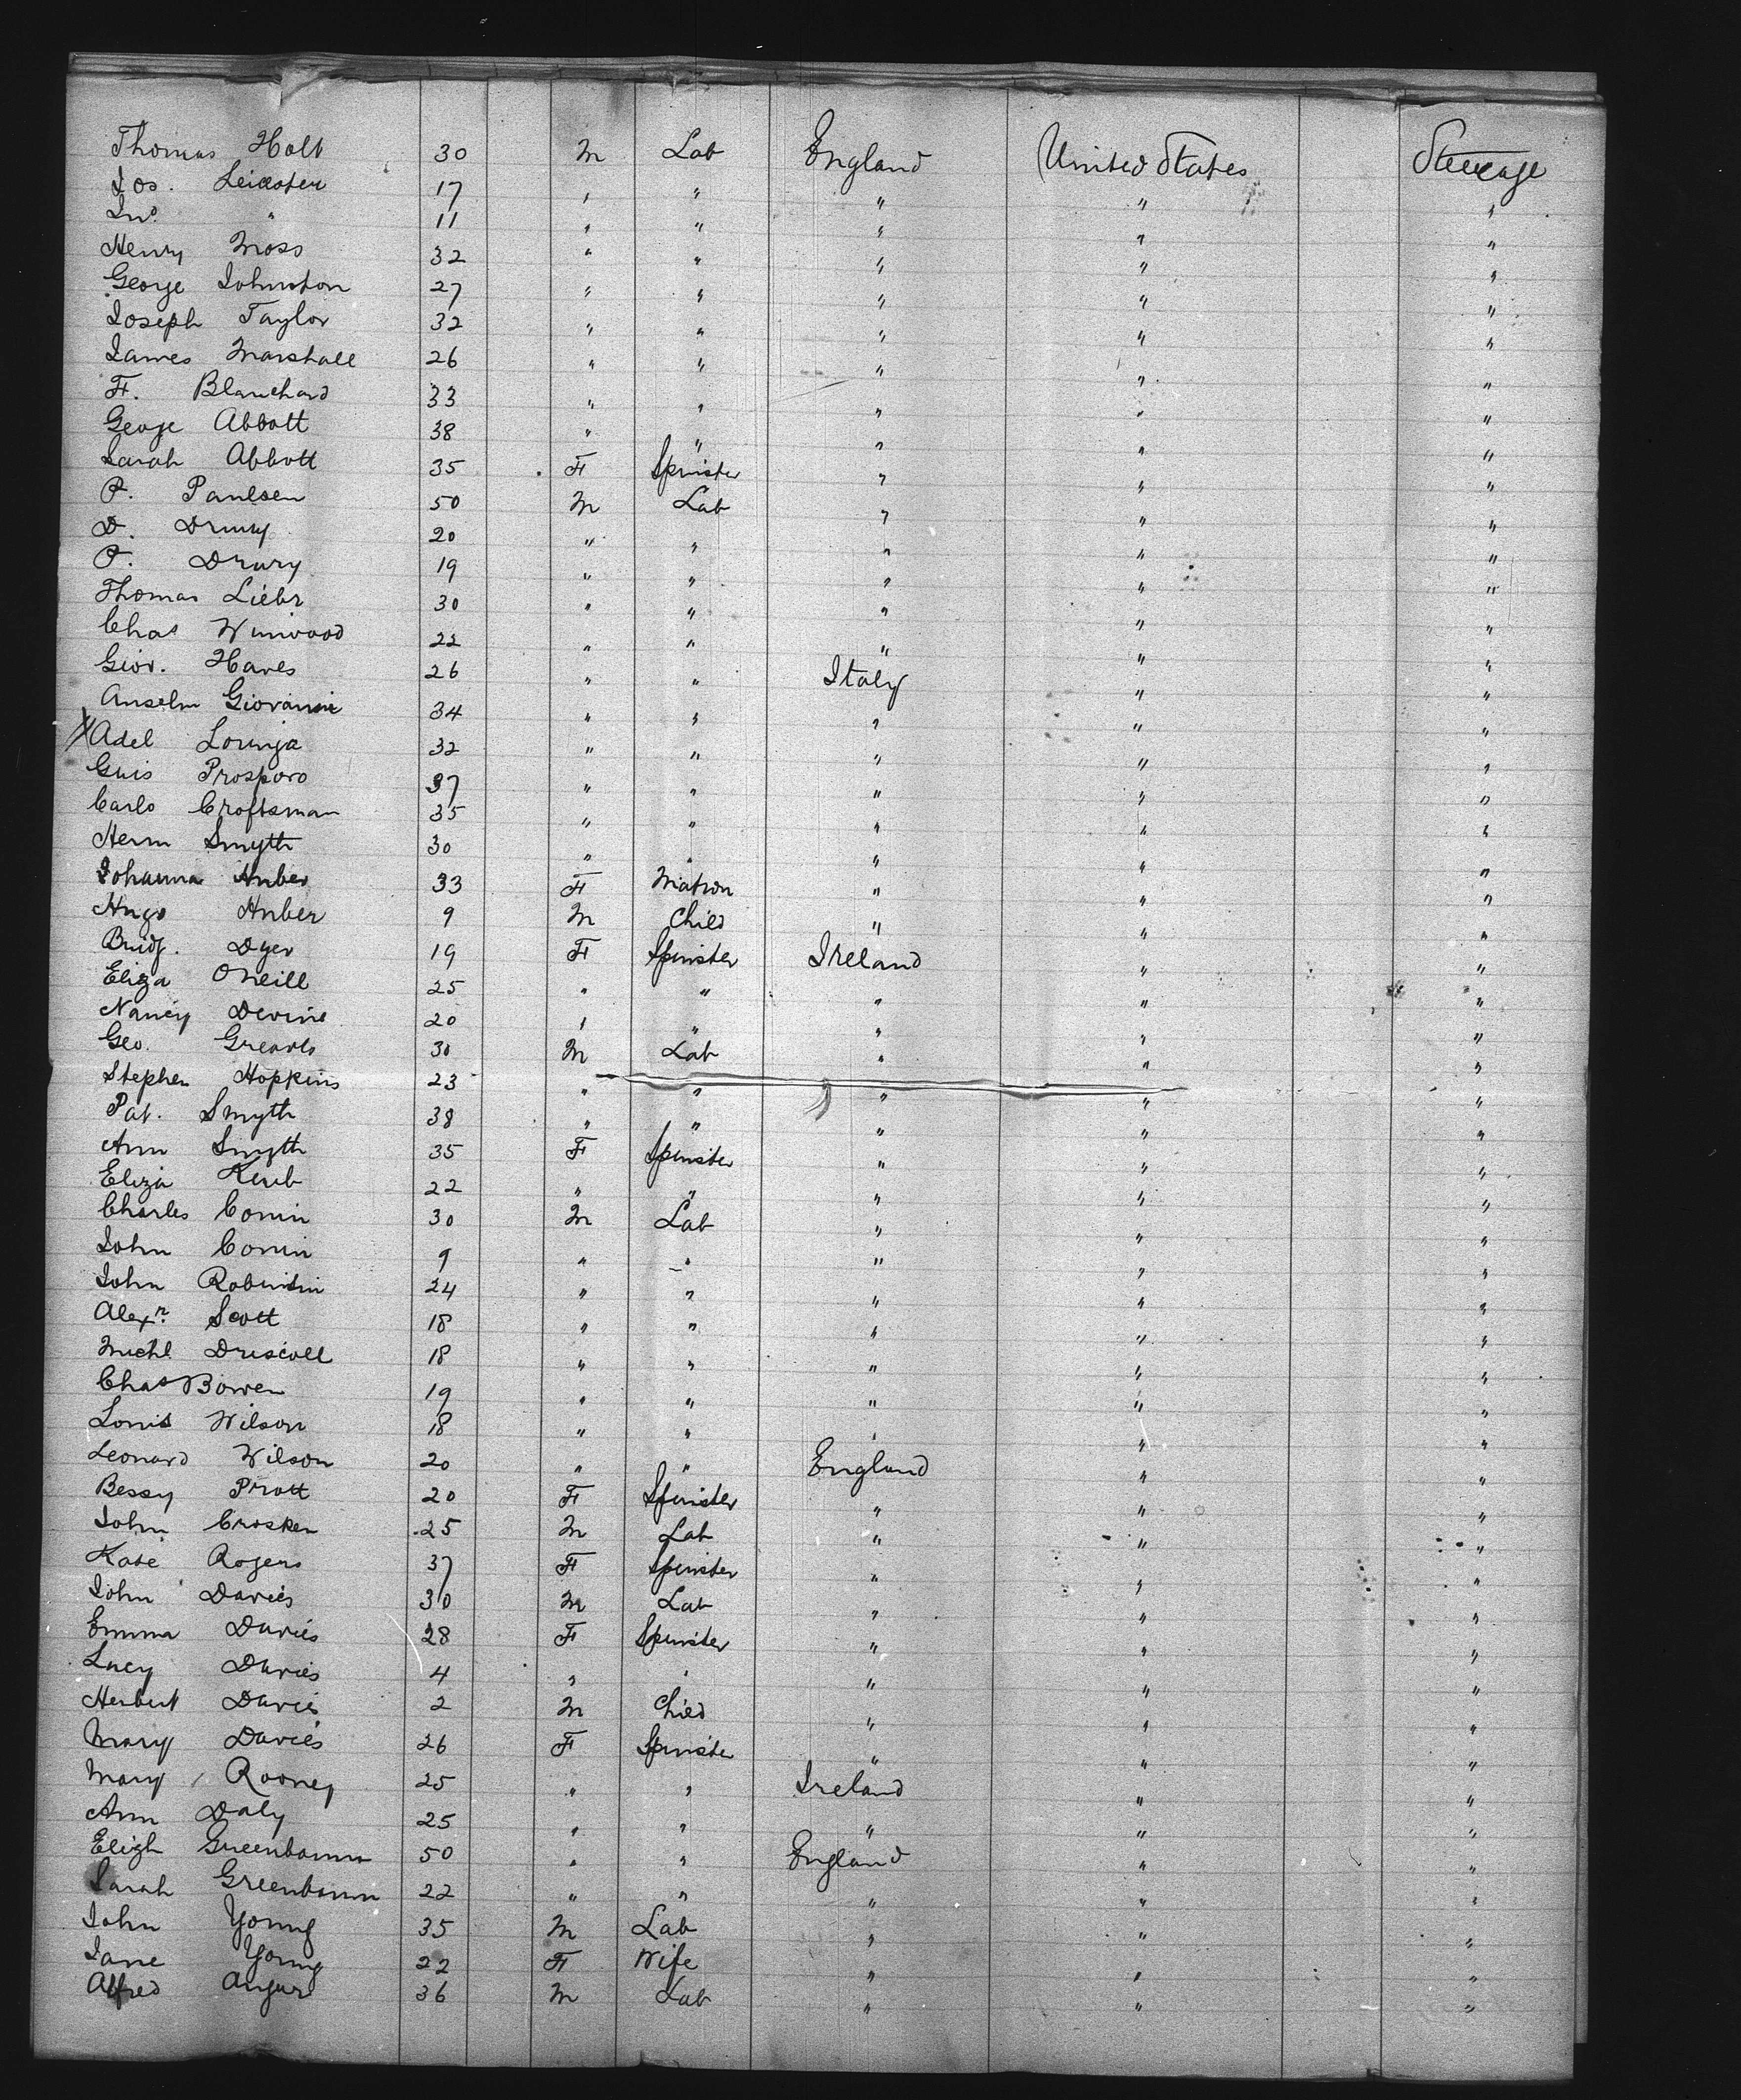 Thomas Holt 30 M Lab England United States Steerage
Jos. Leicester 17 " " " " "
Jno. " 11 " " " " "
Henry Moss 32 " " " " "
George Johnston 27 " " " " "
Joseph Taylor 32 " " " " "
James Marshall 26 " " " " "
F. Blanchard 33 " " " " "
George Abbott 38 " " " " "
Sarah Abbott 35 F Spinster " " "
P. Paulsen 50 M Lab " " "
D. Drury 20 " " " " "
P. Drury 19 " " " " "
Thomas Liebr 30 " " " " "
Chas Winwood 22 " " " " "
Giov. Haves 26 " " Italy " "
Anselm Giovanni 34 " " " " "
X Adel Loringa 32 " " " " "
Guis Prosporo 37 " " " " "
Carlo Croftsman 35 " " " " "
Herm Smyth 30 " " " " "
Johanna Huber 33 F Matron " " "
Hugo Huber 9 M Child " " "
Bridg. Dyer 19 F Spinster Ireland " "
Eliza ONeill 25 " " " " "
Nancy Devine 20 " " " " "
Geo. 30 M Lab " " "
Stephen Hopkins 23 " " " " "
Pat. Smyth 38 " " " " "
Ann Smyth 35 F Spinster " " "
Eliza 22 " " " " "
Charles Comin 30 M Lab " " "
John Comin 9 " " " " "
John Robinson 24 " " " " "
Alexr. Scott 18 " " " " "
Michl Driscoll 18 " " " " "
Chas Bowen 19 " " " " "
Louis Wilson 18 " " " " "
Leonard Wilson 20 " " England " "
Bessy Pratt 20 F Spinster " " "
John Crosken 25 M Lab " " "
Kate Rogers 37 F Spinster " " "
John Davies 30 M Lab " " "
Emma Davies 28 F Spinster " " "
Lucy Davies 4 " " " " "
Herbert Davies 2 M Child " " "
Mary Davies 26 F Spinster " " "
Mary Rooney 25 " " Ireland " "
Ann Daly 25 " " " " "
Elizh Greenbaum 50 " " England " "
Sarah Greenbaum 22 " " " " "
John Young 35 M Lab " " "
Jane Young 22 F Wife " " "
Alfred Angus 36 M Lab " " "